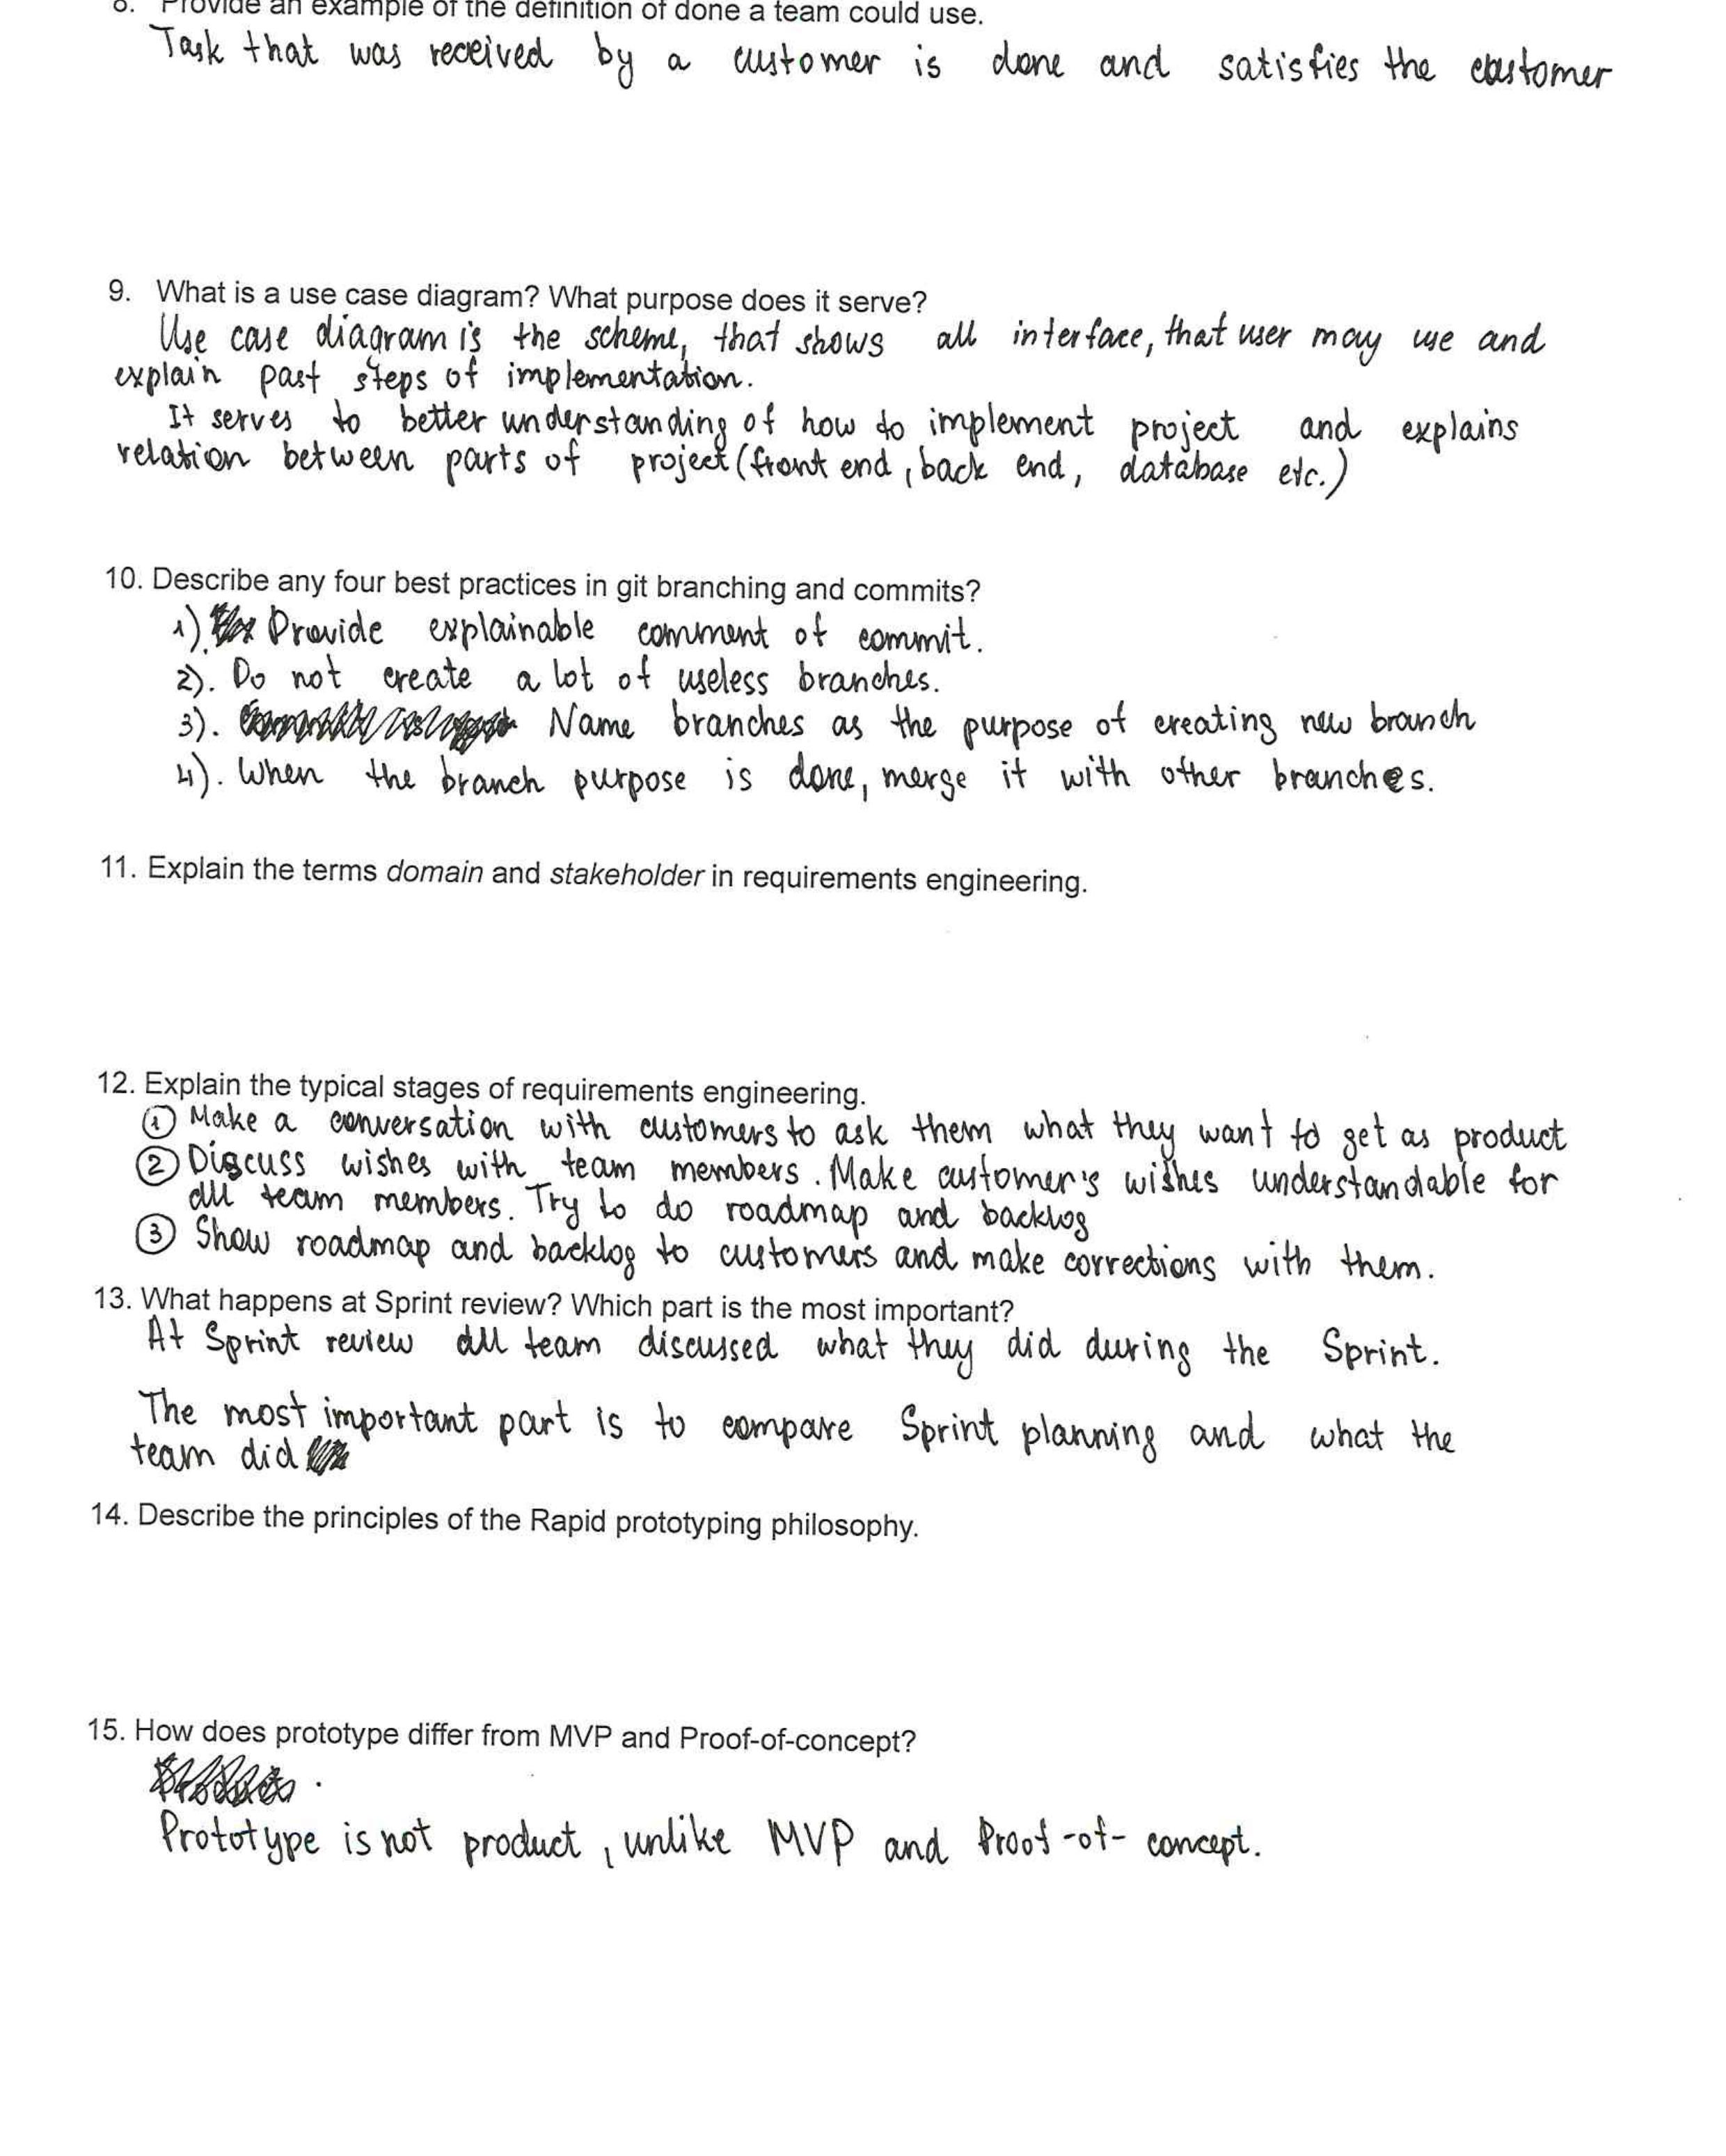 8. Provide an example of the definition of done a team could use.
Task that was received by a customer is done and satisfies the customer
9. What is a use case diagram? What purpose does it serve?
Use case diagram is the scheme, that shows all interface, that user may use and
explain past steps of implementation.
It serves to better understanding of how to implement project and explains
relation between parts of project (front end, back end, database etc.)
10. Describe any four best practices in git branching and commits?
1). Provide explainable comment of commit.
2). Do not create a lot of useless branches.
3). Name branches as the purpose of creating new branch
4). When the branch purpose is done, merge it with other branches.
11. Explain the terms domain and stakeholder in requirements engineering.
12. Explain the typical stages of requirements engineering.
① Make a conversation with customers to ask them what they want to get as product
② Discuss wishes with team members. Make customer's wishes understandable for
all team members. Try to do roadmap and backlog
③ Show roadmap and backlog to customers and make corrections with them.
13. What happens at Sprint review? Which part is the most important?
At Sprint review all team discussed what they did during the Sprint.
The most important part is to compare Sprint planning and what the
team did
14. Describe the principles of the Rapid prototyping philosophy.
15. How does prototype differ from MVP and Proof-of-concept?
Prototype is not product, unlike MVP and Proof-of-concept.